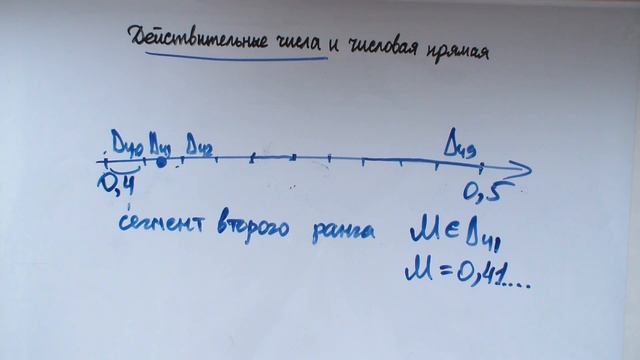 Действительные числа и числовая прямая
Δ40 Δ41 Δ42 Δ49
0,4 0,5
сегмент второго ранга M ∈ Δ41
M = 0,41....